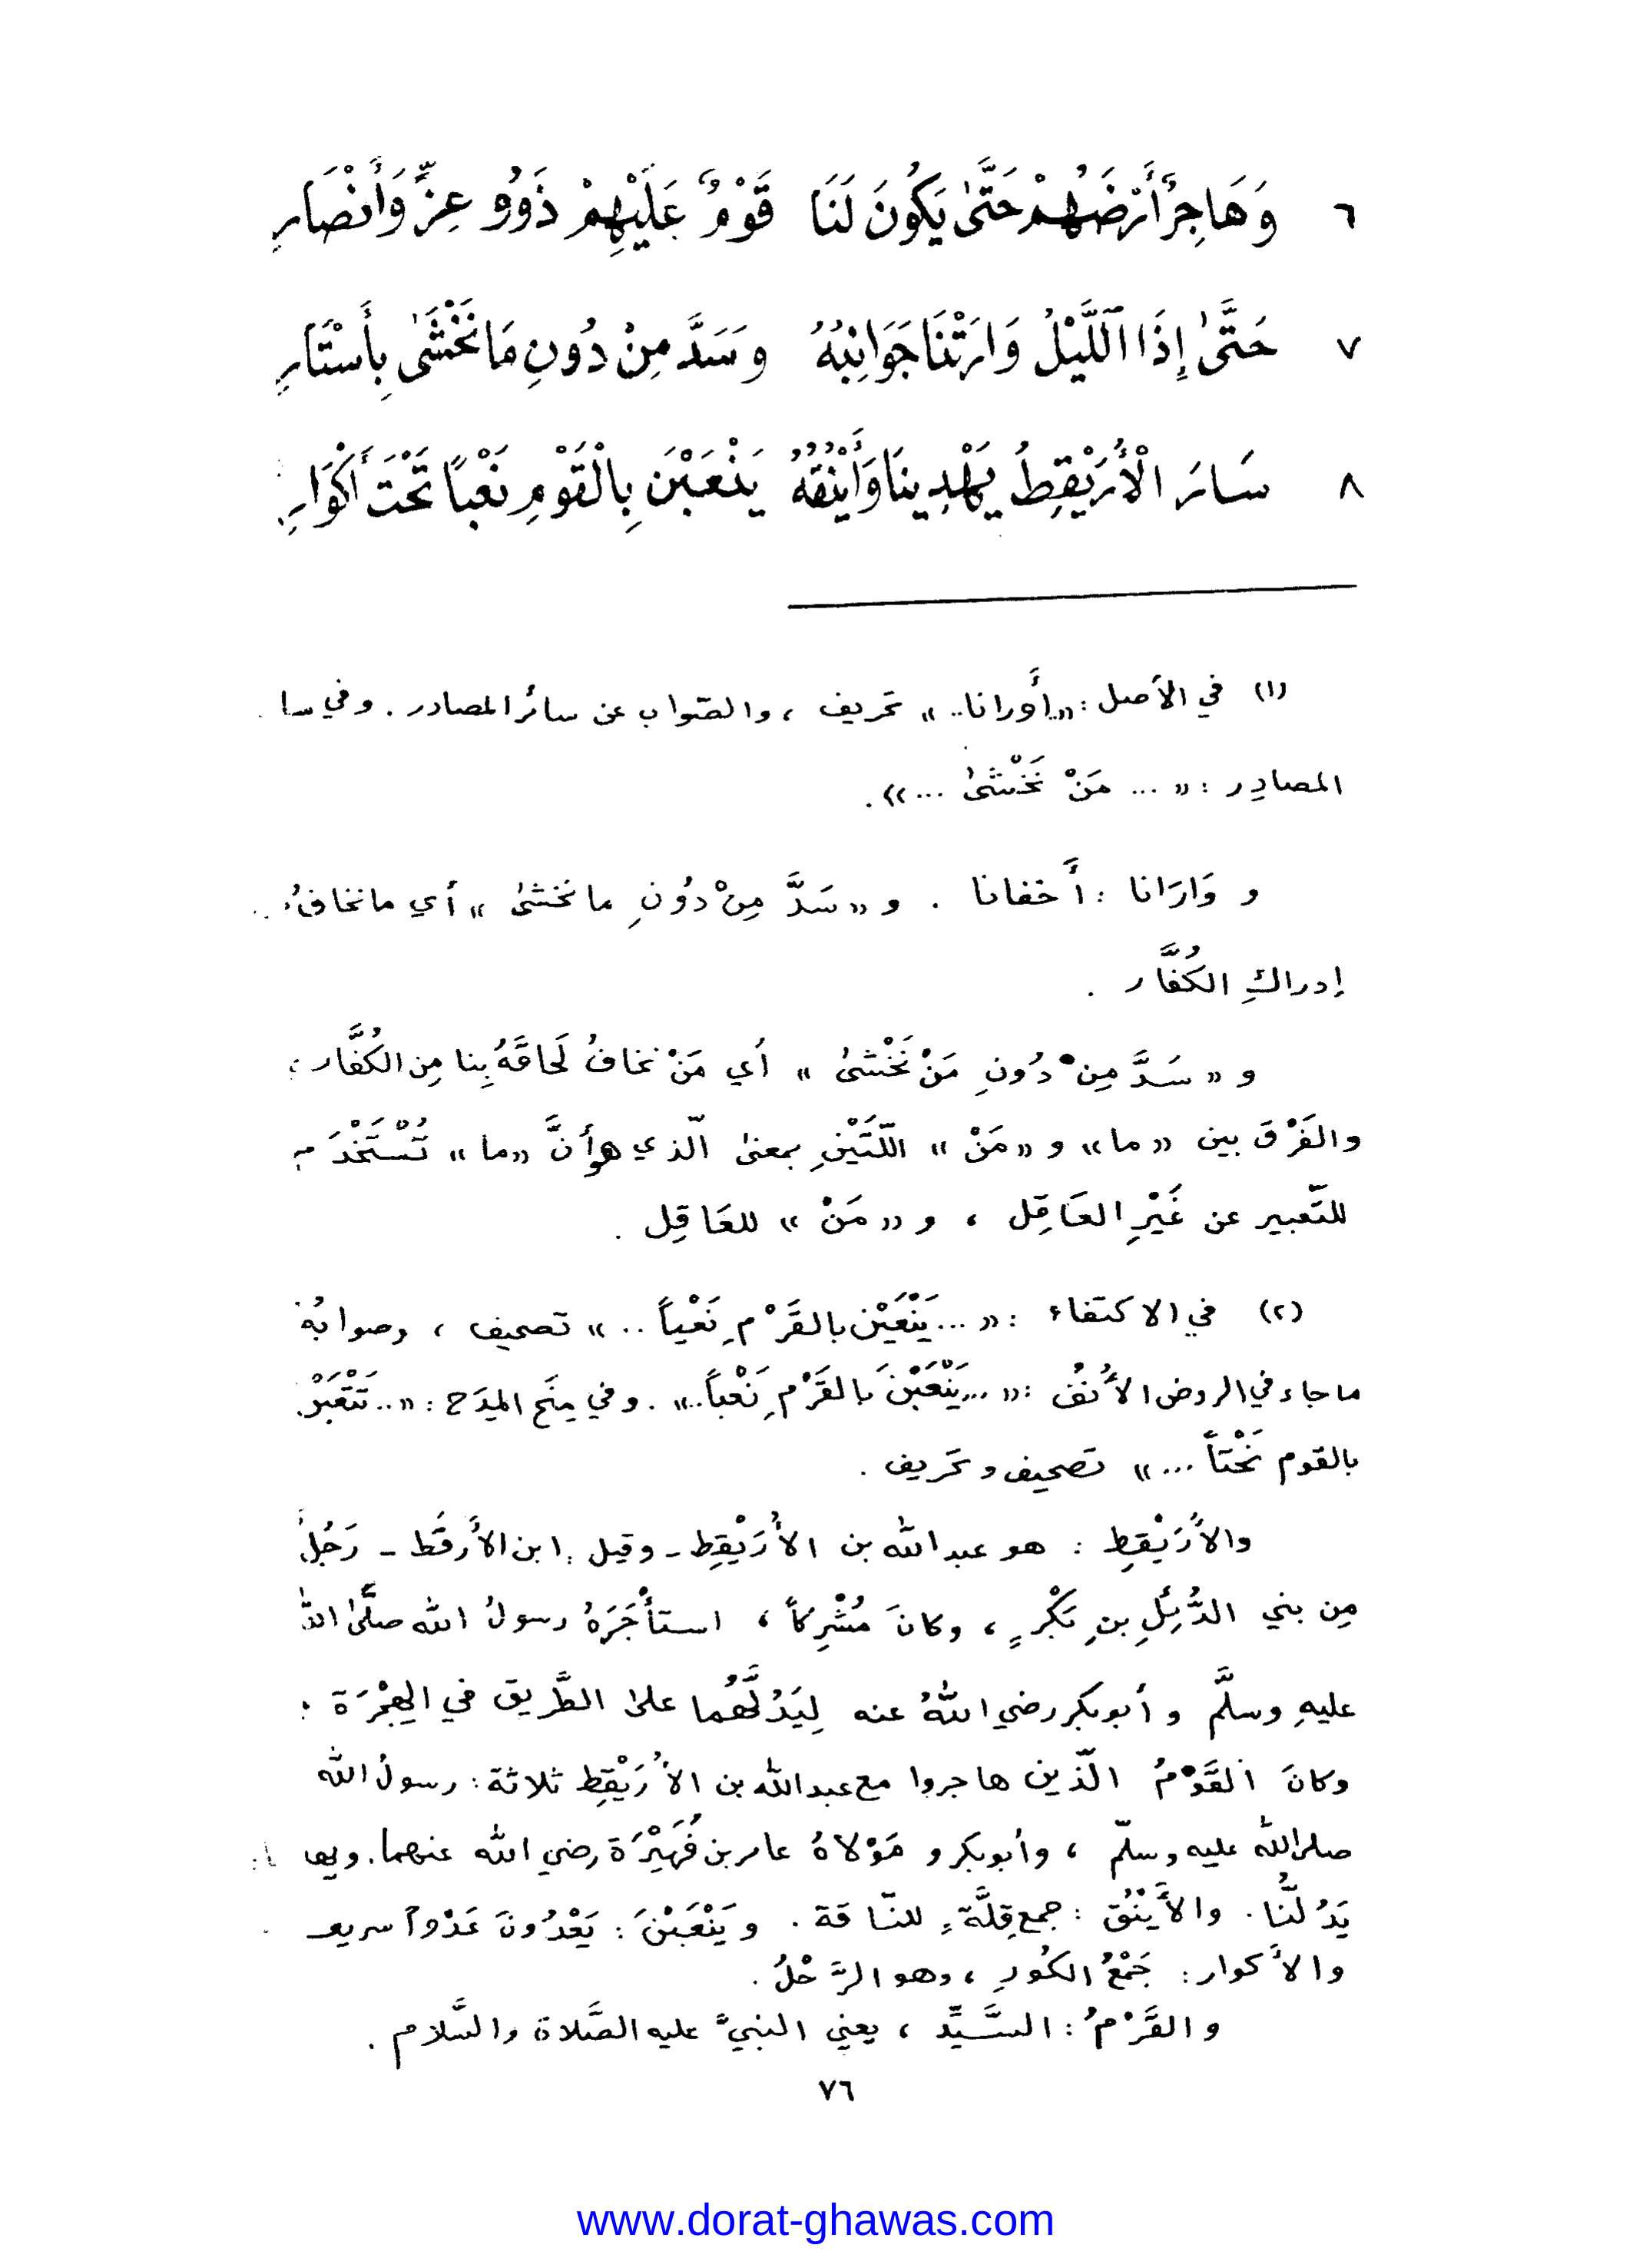 ٦ وَهَاجِرٌ أَرْضَهُمْ حَتَّىٰ يَكُونَ لَنَا قَوْمٌ عَلَيْهِمْ ذَوُو عِزٍّ وَأَنْصَارِ
٧ حَتَّىٰ إِذَا اللَّيْلُ وَارَتْنَا جَوَانِبُهُ وَسَدَّ مِنْ دُونِ مَا نَخْشَىٰ بِأَسْتَارِ
٨ سَارَ الْأُرَيْقِطُ يَهْدِينَا وَأَيْنُقُهُ يَنْعَبْنَ بِالْقَوْمِ نَعْباً تَحْتَ أَكْوَارِ
(١) في الأصل : «..أَورانا..» تحريف ، والصّواب عن سائر المصادر . وفي سا
المصادِر : « ... مَنْ نَخْشَىٰ ... » .
و وَارَانا : أَخفانا . و «سَدَّ مِنْ دُونِ ما نخشىٰ » أي ما نخافُ
إدراكِ الكُفَّار .
و «سَدَّ مِنْ دُونِ مَنْ نَخْشَىٰ » أي مَنْ نخافُ لَحاقَهُ بِنا مِن الكُفَّار :
والفَرْقَ بين «ما» و «مَنْ » اللّتَيْنِ بمعنىٰ الّذي هو أنَّ «ما» تُسْتَخْدَم
للتّعبير عن غَيْرِ العَاقِل ، و «مَنْ » للعَاقِل .
(٢) في الاكتفاء : « ... يَنْعَيْن بالقَرْمِ نَعْياً .. » تصحيف ، وصوابُهُ
ما جاء في الروض الأُنف : « ... يَنْعَبْنَ بالقَرْمِ نَعْباً..» . وفي مِنَح المِدَح : «..تَتْعَبْن
بالقوم نَخْتاً ... » تصحيف وتحريف .
والأُرَيْقِط : هو عبدالله بن الأُرَيْقِط - وقيل : ابن الأَرقَط - رَجُلٌ
مِن بني الدُّئِلِ بنِ بَكْرٍ ، وكانَ مُشْرِكاً ، استأْجَرَهُ رسولُ الله صلَّىٰ الله
عليهِ وسلَّم و أبو بكر رضي اللهُ عنه لِيَدُلَّهُما علىٰ الطَّريق في الهِجْرَة :
وكانَ القَوْمُ الّذين هاجروا مع عبدالله بن الأُرَيْقِط ثلاثة : رسولُ الله
صلى الله عليه وسلّم ، وأبو بكر و مَوْلاهُ عامر بن فُهَيْرَة رضي الله عنهما .
يَدُلُّنا . والأَيْنُق : جمع قِلَّةٍ للنّاقة . ويَنْعَبْنَ : يَعْدُونَ عَدْواً سريعـ
والأَكوار : جَمْعُ الكُورِ ، وهو الرَّحْلُ .
والقَرْمُ : السَّيِّد ، يعني النبيَّ عليه الصَّلاة والسَّلام .
٧٦
www.dorat-ghawas.com